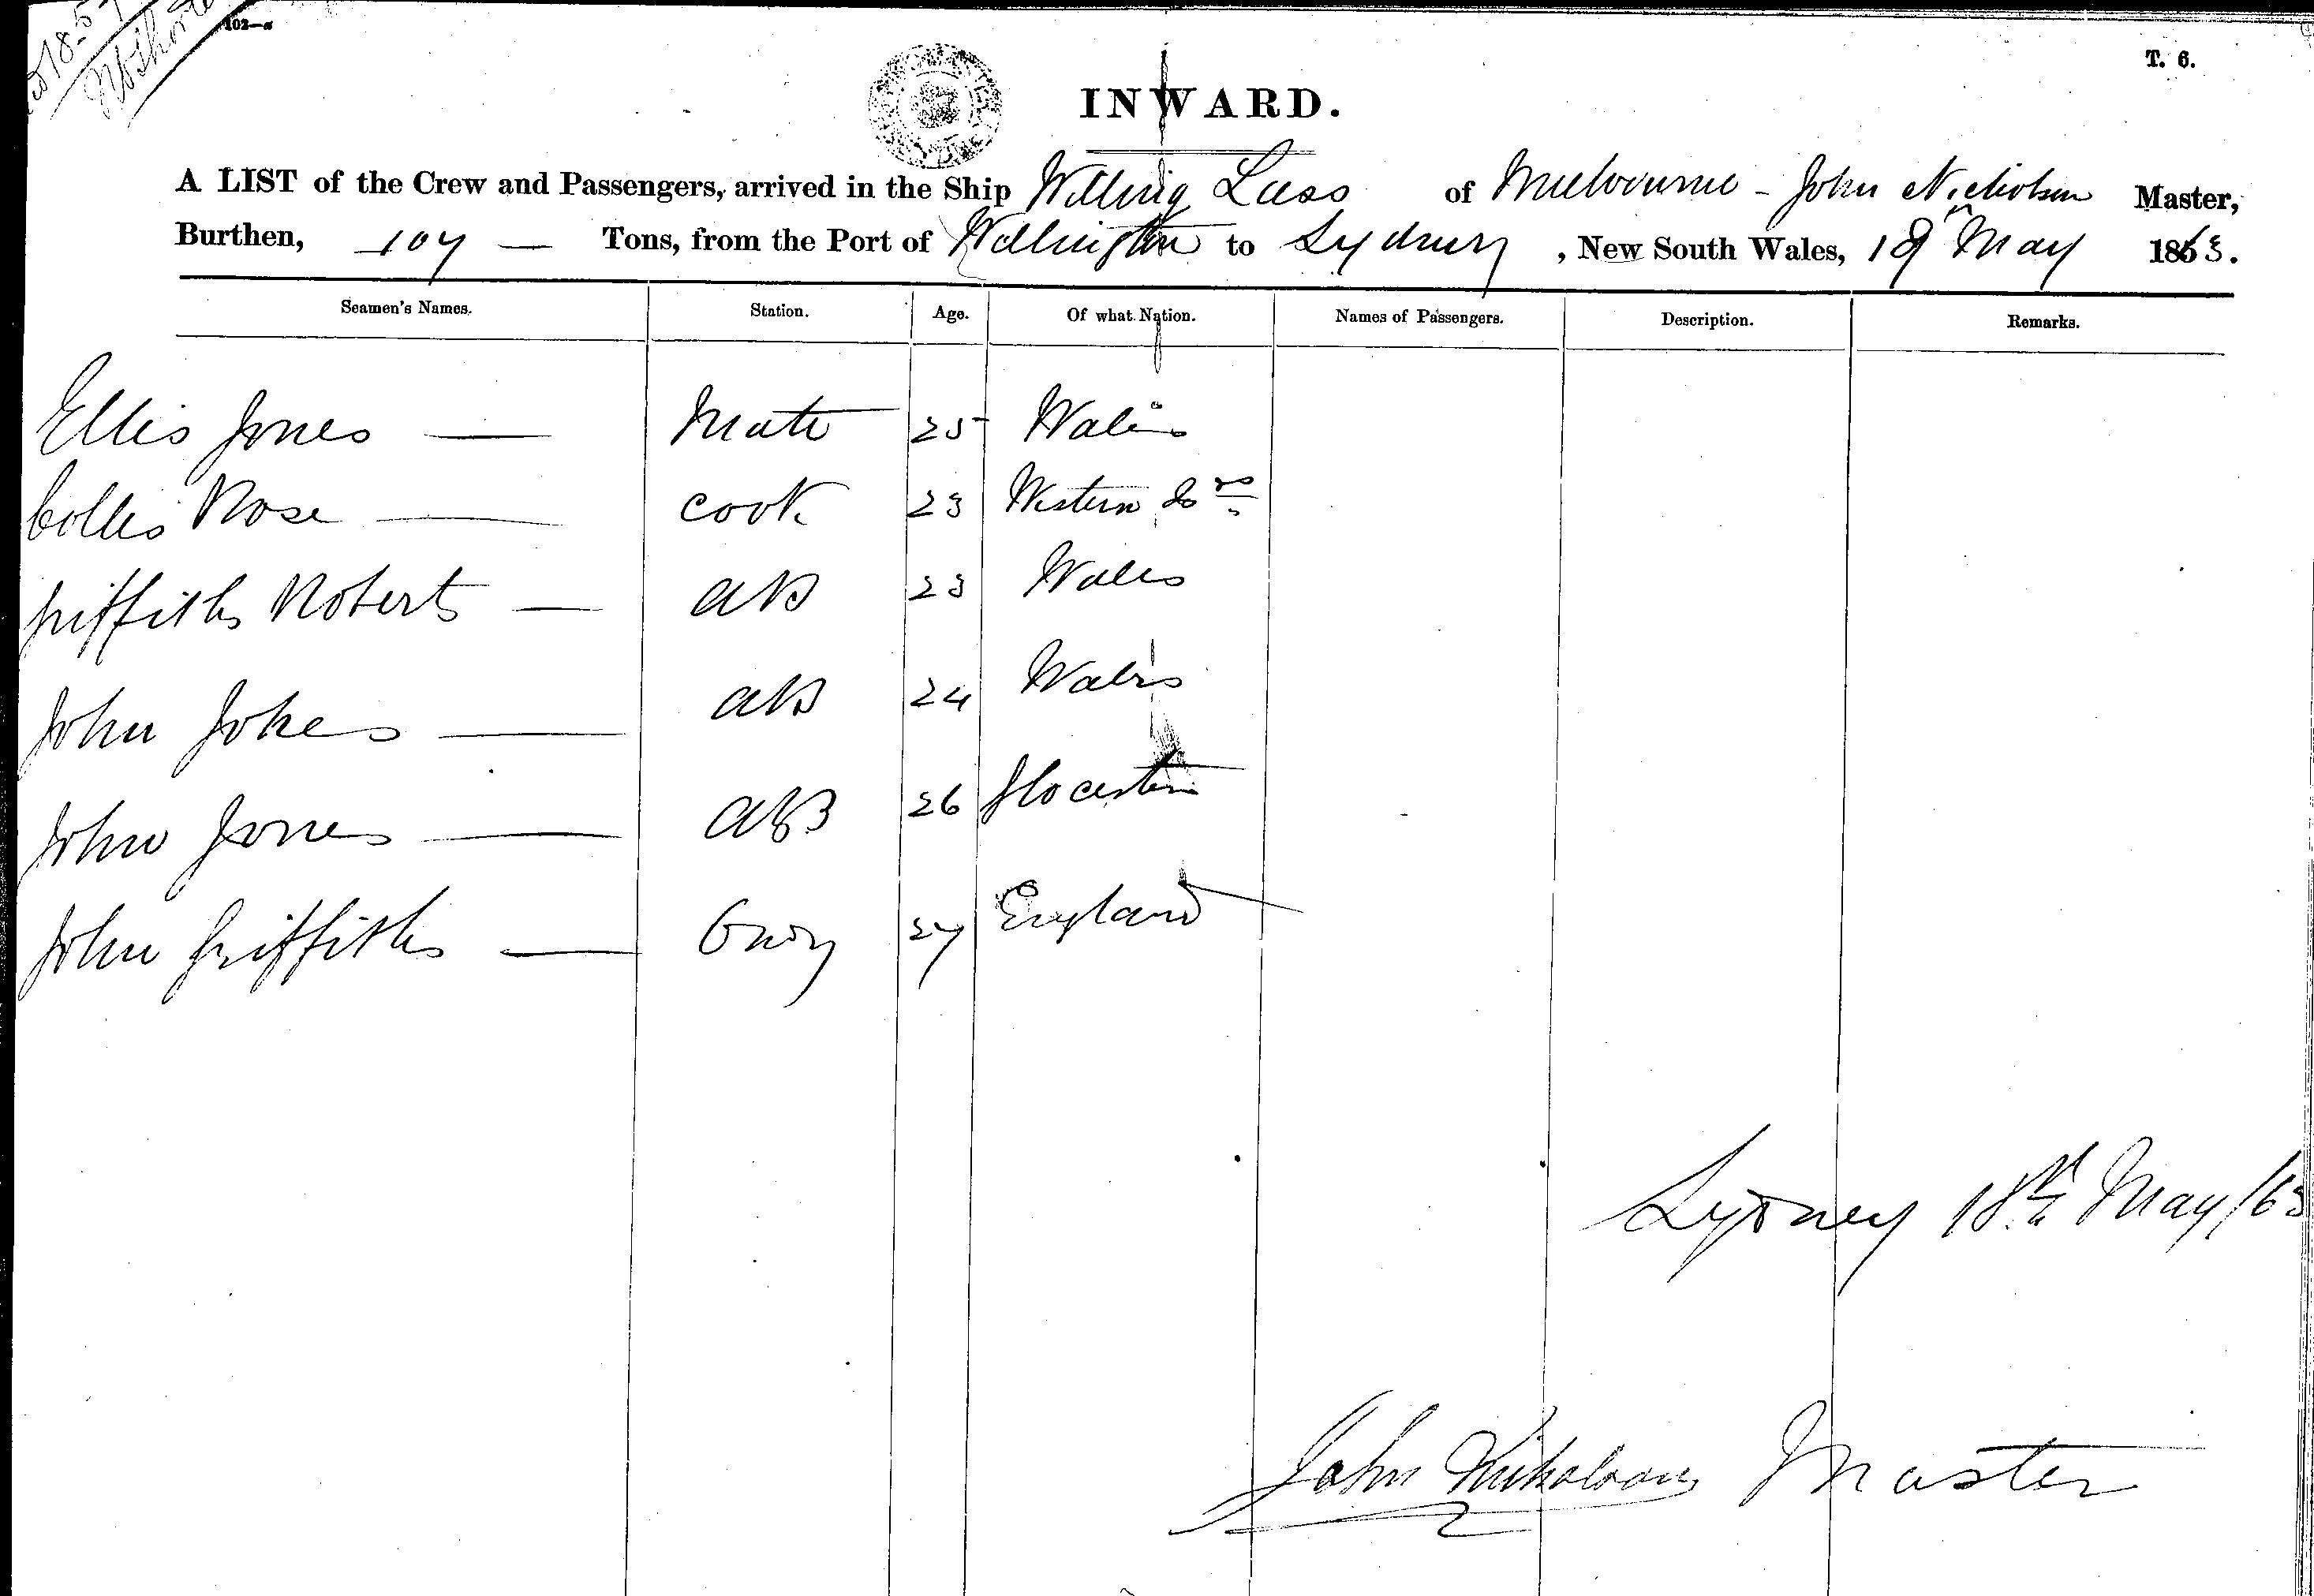 102—a
T. 6.
INWARD.
A LIST of the Crew and Passengers, arrived in the Ship Willing Lass of Melbourne - John Nicholson Master,
Burthen, 107 — Tons, from the Port of Wellington to Sydney, New South Wales, 18 May 1863.
Seamen's Names. Station. Age. Of what Nation. Names of Passengers. Description. Remarks.
Ellis Jones — Mate 25 Wales
Rose — cook 23 Western
Griffiths Roberts — AB 23 Wales
John — AB 24 Wales
John Jones — AB 26 Glocester
John Griffiths — 27 England
Sydney 18th May/63
John Nicholson Master